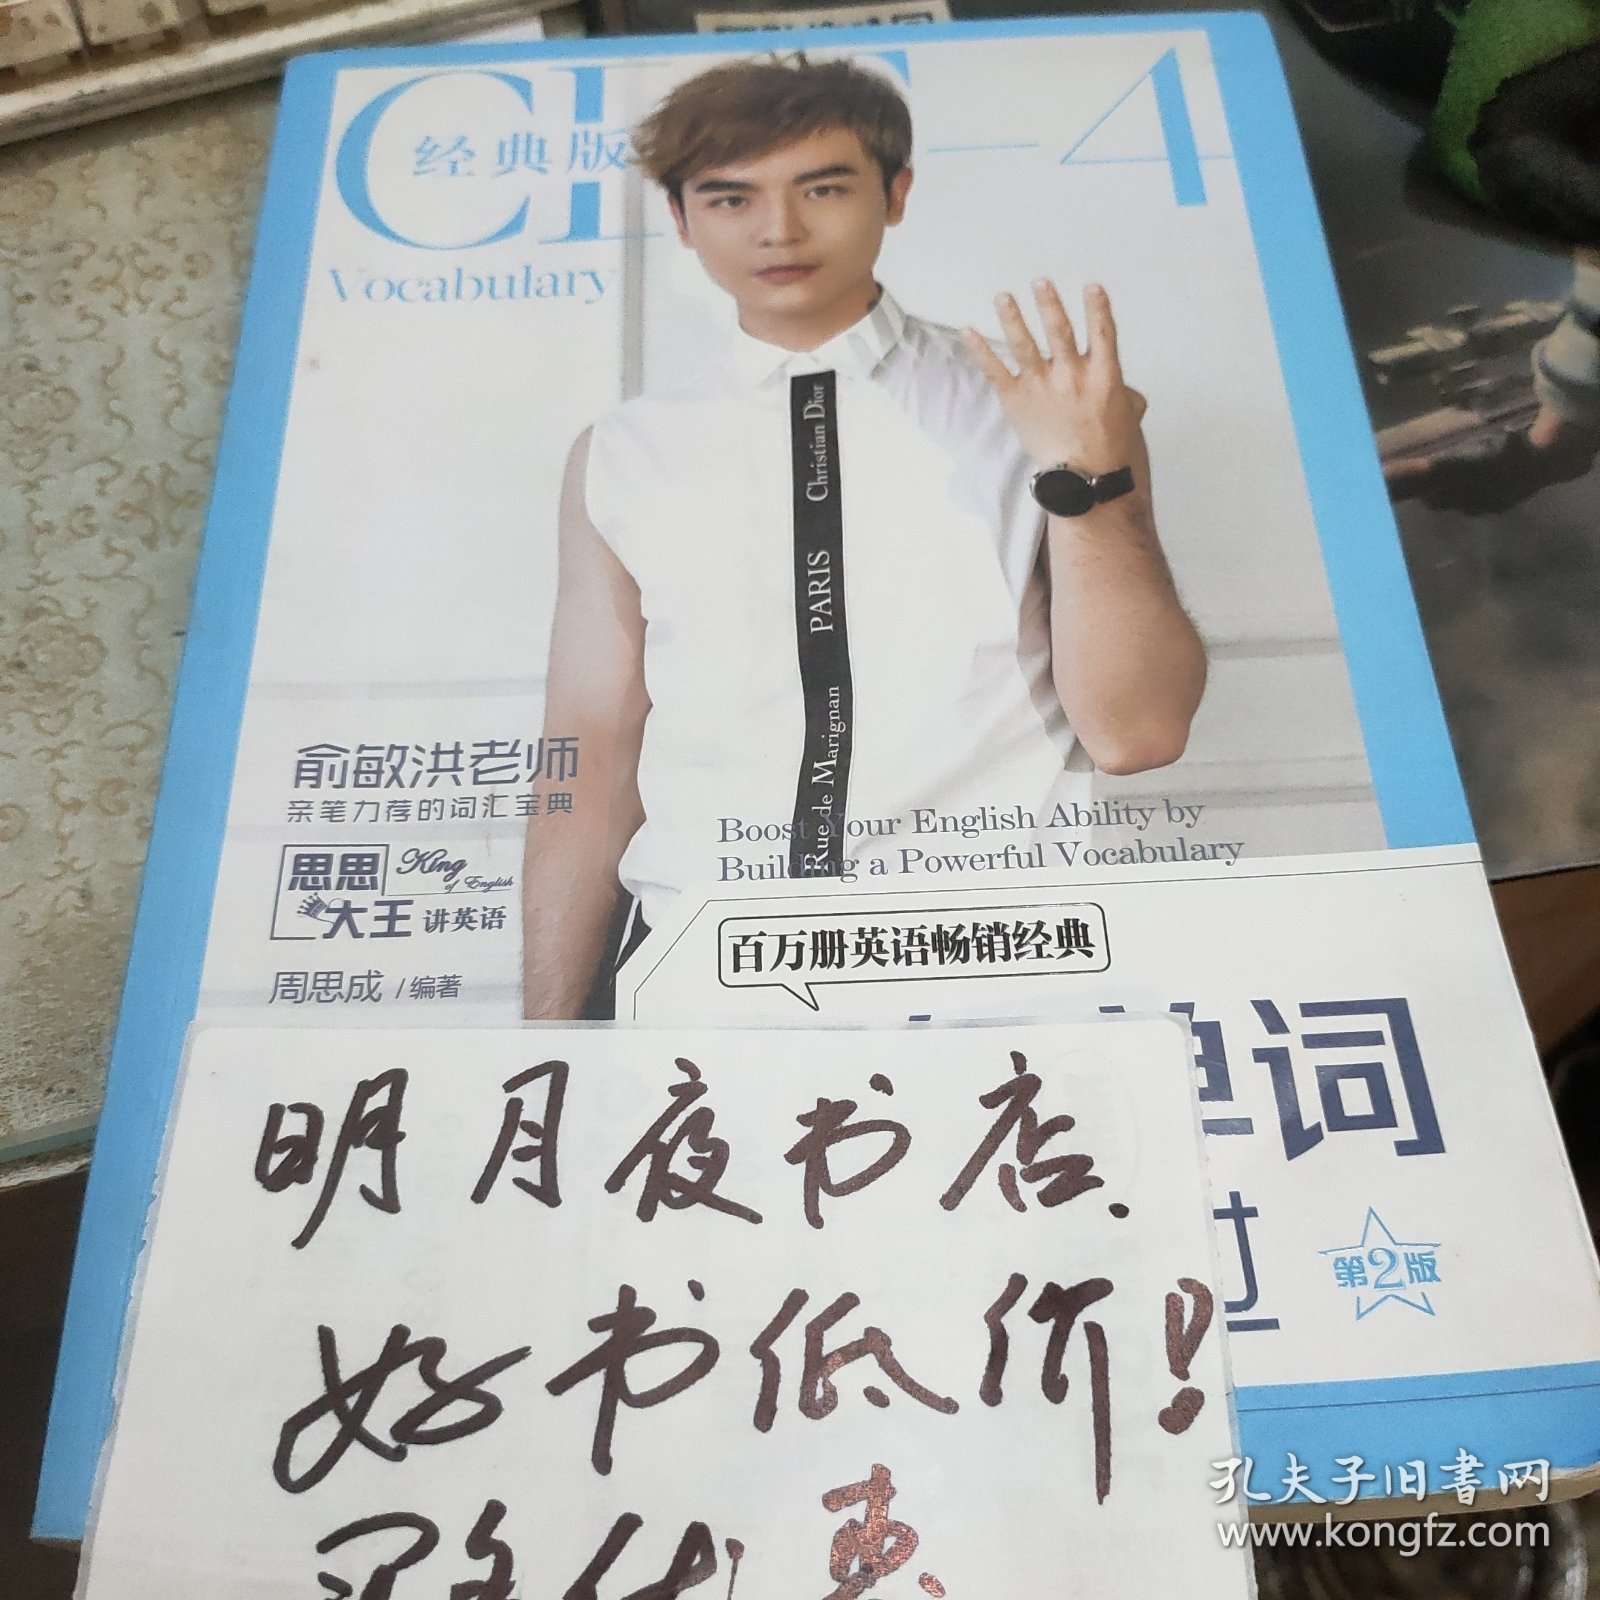 经典版
4
Vocabulary
Christian Dior
PARIS
Rue de Marignan
俞敏洪老师
亲笔力荐的词汇宝典
思思
King
of English
大王 讲英语
周思成 / 编著
Boost Your English Ability by
Building a Powerful Vocabulary
百万册英语畅销经典
单词
第2版
明月夜书店.
好书低价!
孔夫子旧书网
www.kongfz.com